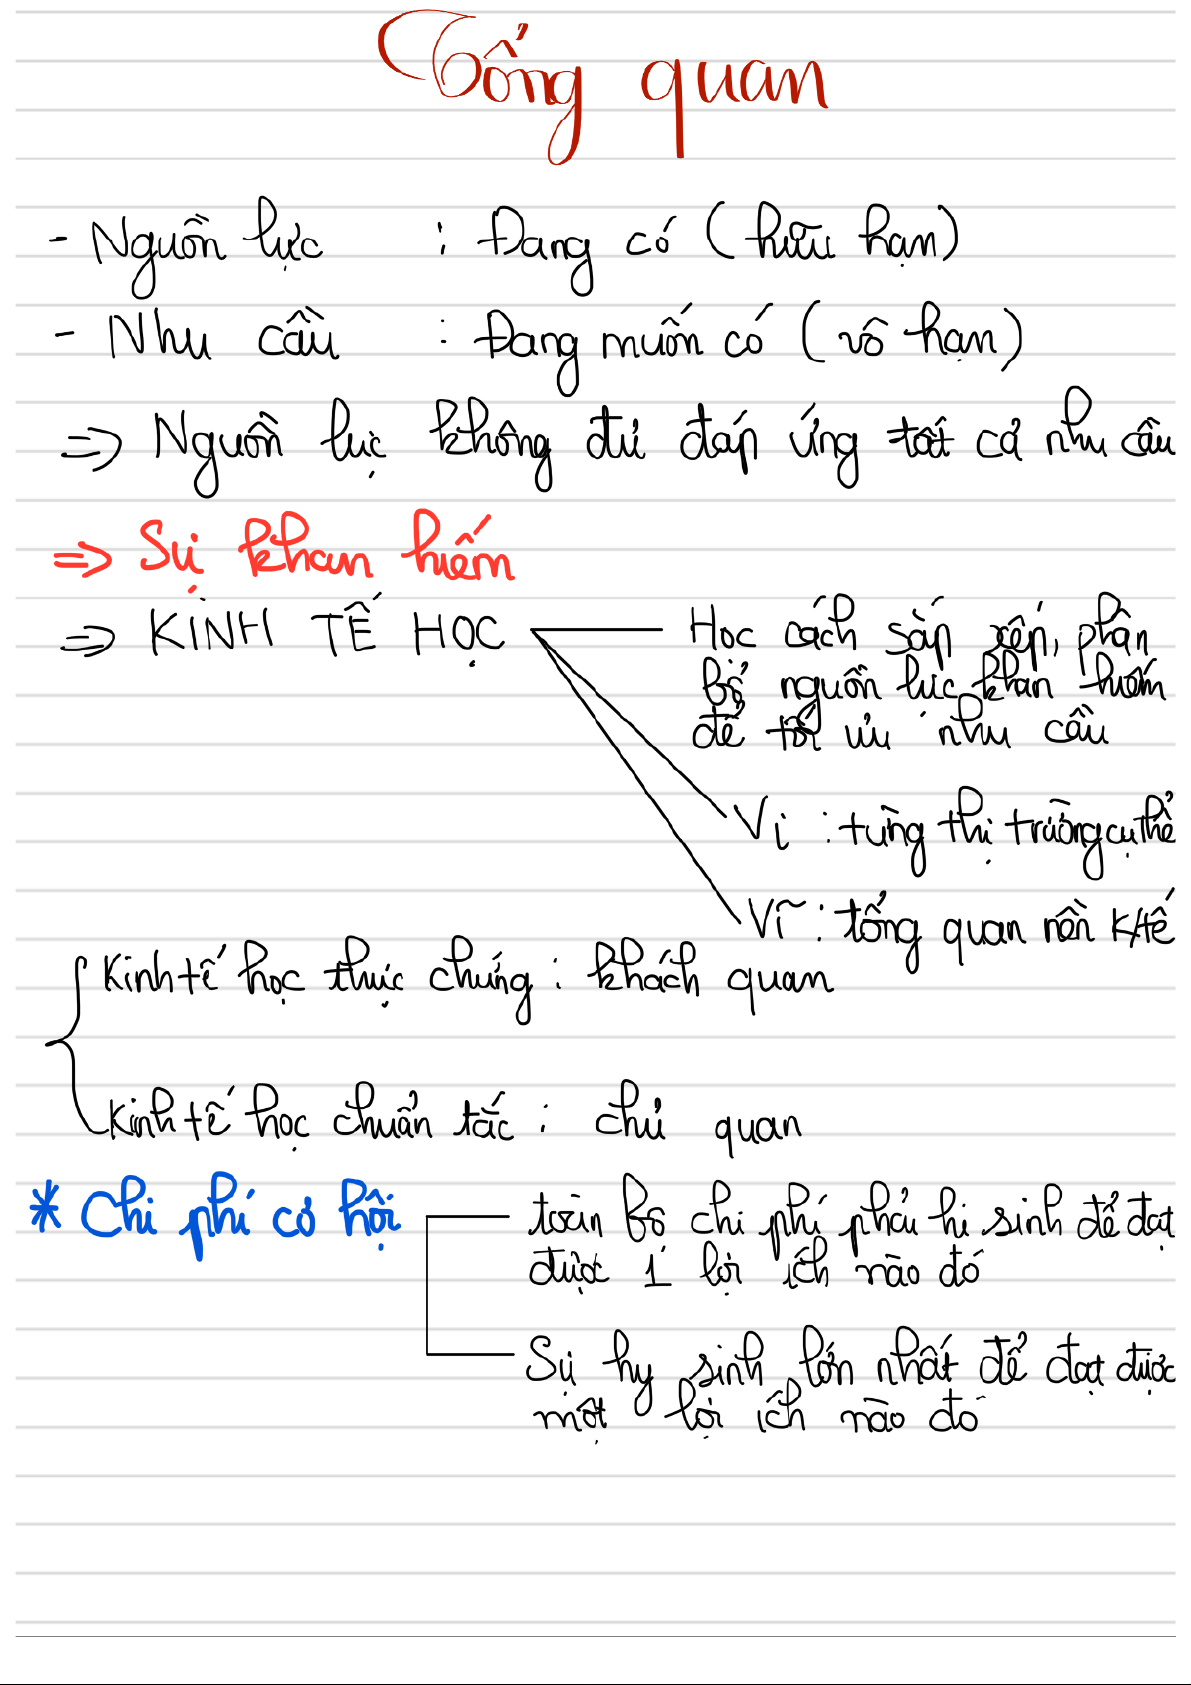 Tổng quan
- Nguồn lực : Đang có (hữu hạn)
- Nhu cầu : Đang muốn có (vô hạn)
=> Nguồn lực không đủ đáp ứng tất cả nhu cầu
=> Sự khan hiếm
=> KINH TẾ HỌC
Học cách sắp xếp, phân
bổ nguồn lực khan hiếm
để tối ưu nhu cầu
Vi : từng thị trường cụ thể
Vĩ : tổng quan nền k/tế
Kinh tế học thực chứng : khách quan
Kinh tế học chuẩn tắc : chủ quan
* Chi phí cơ hội
toàn bộ chi phí phải hi sinh để đạt
được 1 lợi ích nào đó
Sự hy sinh lớn nhất để đạt được
một lợi ích nào đó